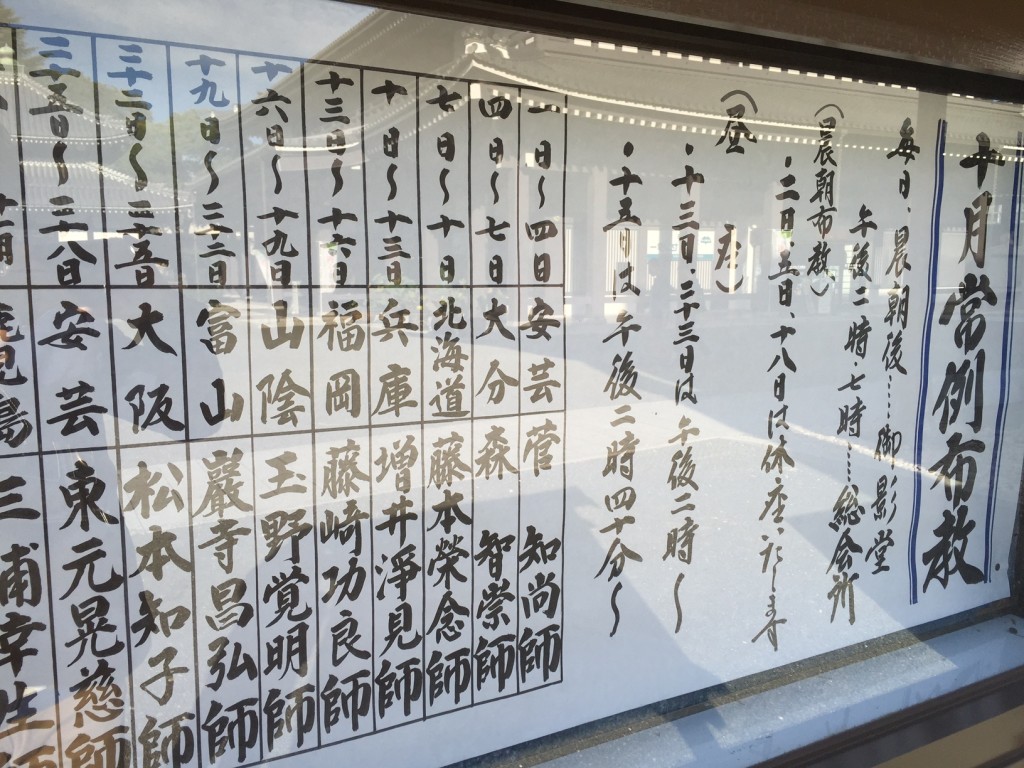 十月常例布教
毎日、晨朝後……御影堂
午後二時・七時……総会所
（晨朝布教）
・二日、五日、十八日は休座致します
（昼座）
・十三日、二十三日は午後二時〜
・十五日は午後二時四十分〜
一日〜四日 安芸 菅 知尚師
四日〜七日 大分 森 智崇師
七日〜十日 北海道 藤本榮念師
十日〜十三日 兵庫 増井淨見師
十三日〜十六日 福岡 藤崎功良師
十六日〜十九日 山陰 玉野覚明師
十九日〜二十二日 富山 巖寺昌弘師
二十二日〜二十五日 大阪 松本知子師
二十五日〜二十八日 安芸 東元晃慈師
鹿児島 三浦幸生師